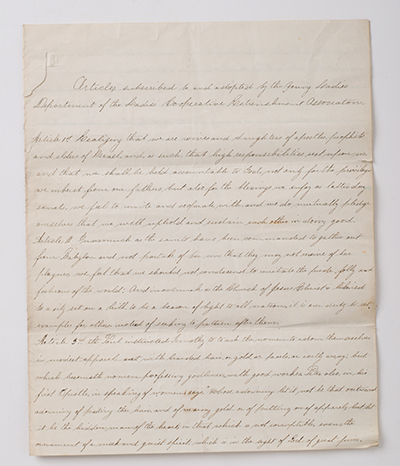 Articles subscribed to and adopted by the Young Ladies
Department of the Ladies Co-operative Retrenchment Association
Article 1st Realizing that we are wives and daughters of apostles prophets
and elders of Israel, and as such that high responsibilities rest upon us
and that we shall be held accountable to God, not only for the privileges
we inherit from our fathers but also for the blessings we enjoy as latter day
saints, we feel to unite and with and we do mutually pledge
ourselves that we will uphold and sustain each other in doing good.
Article II Inasmuch as the saints have been commanded to gather out
from Babylon and not partake of her sins that they may not receive of her
plagues we feel that we should not condescend to imitate the pride, folly and
fashions of the world. And inasmuch as the Church of Jesus Christ is likened
to a city set on a hill to be a beacon of light to all nations it is our duty to set
examples for others instead of seeking to pattern after them.
Article 3rd St Paul instructed Timothy to teach the women to adorn themselves
in modest apparel not with braided hair or gold or pearls or costly array; but
which becometh women professing godliness with good works. Peter also in his
first Epistle, in speaking of women says "whose adorning let it not be that outward
adorning of plaiting the hair and of wearing gold or of putting on of apparel, but let
it be the hidden man of the heart in that which is not corruptible, even the
ornament of a meek and quiet spirit, which is in the sight of God of great price.